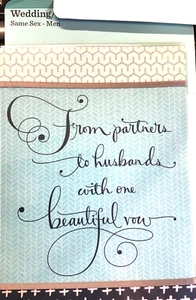 Wedding/
Same Sex - Men
From partners
to husbands
with one
beautiful vow